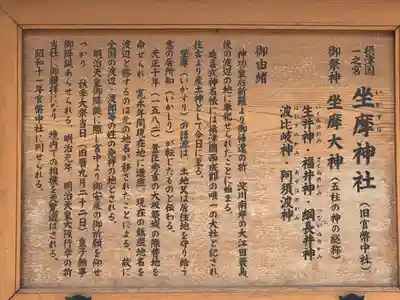 摂津国
一之宮
坐摩神社(旧官幣中社)
いかすり
御祭神 坐摩大神(五柱の神の総称)
生井神・福井神・綱長井神
波比岐神・阿須波神
御由緒
神功皇后新羅より御帰還の折、淀川南岸の大江田蓑島
後の渡辺の地に奉祀せられたことに始まる。
延喜式神名帳には摂津国西成郡の唯一の大社と記され
住古より産土神として今日に至る。
坐摩(いかすり)の語源は、土地又は居住地を守り給う
意の居所知(いかしり)が転じたものと伝わる。
天正十年(一五八二)豊臣秀吉の大阪築城の際替地を
命ぜられ、寛永年間現在地に遷座。現在の鎮座地名を
渡辺と称するのは元の地名が移されたことによる。故に
全国の渡辺・渡部等の姓の発祥の地とされる。
明治天皇御降誕に際し宮中より御安産の御祈願を仰せ
つかり、秋季大祭当日(旧暦九月二十二日)皇子願事
御降誕あらせられる。明治元年、明治天皇大阪行幸の折
当社に御親拝になり、境内での相撲を天覧遊ばされる。
昭和十一年官幣中社に列せられる。